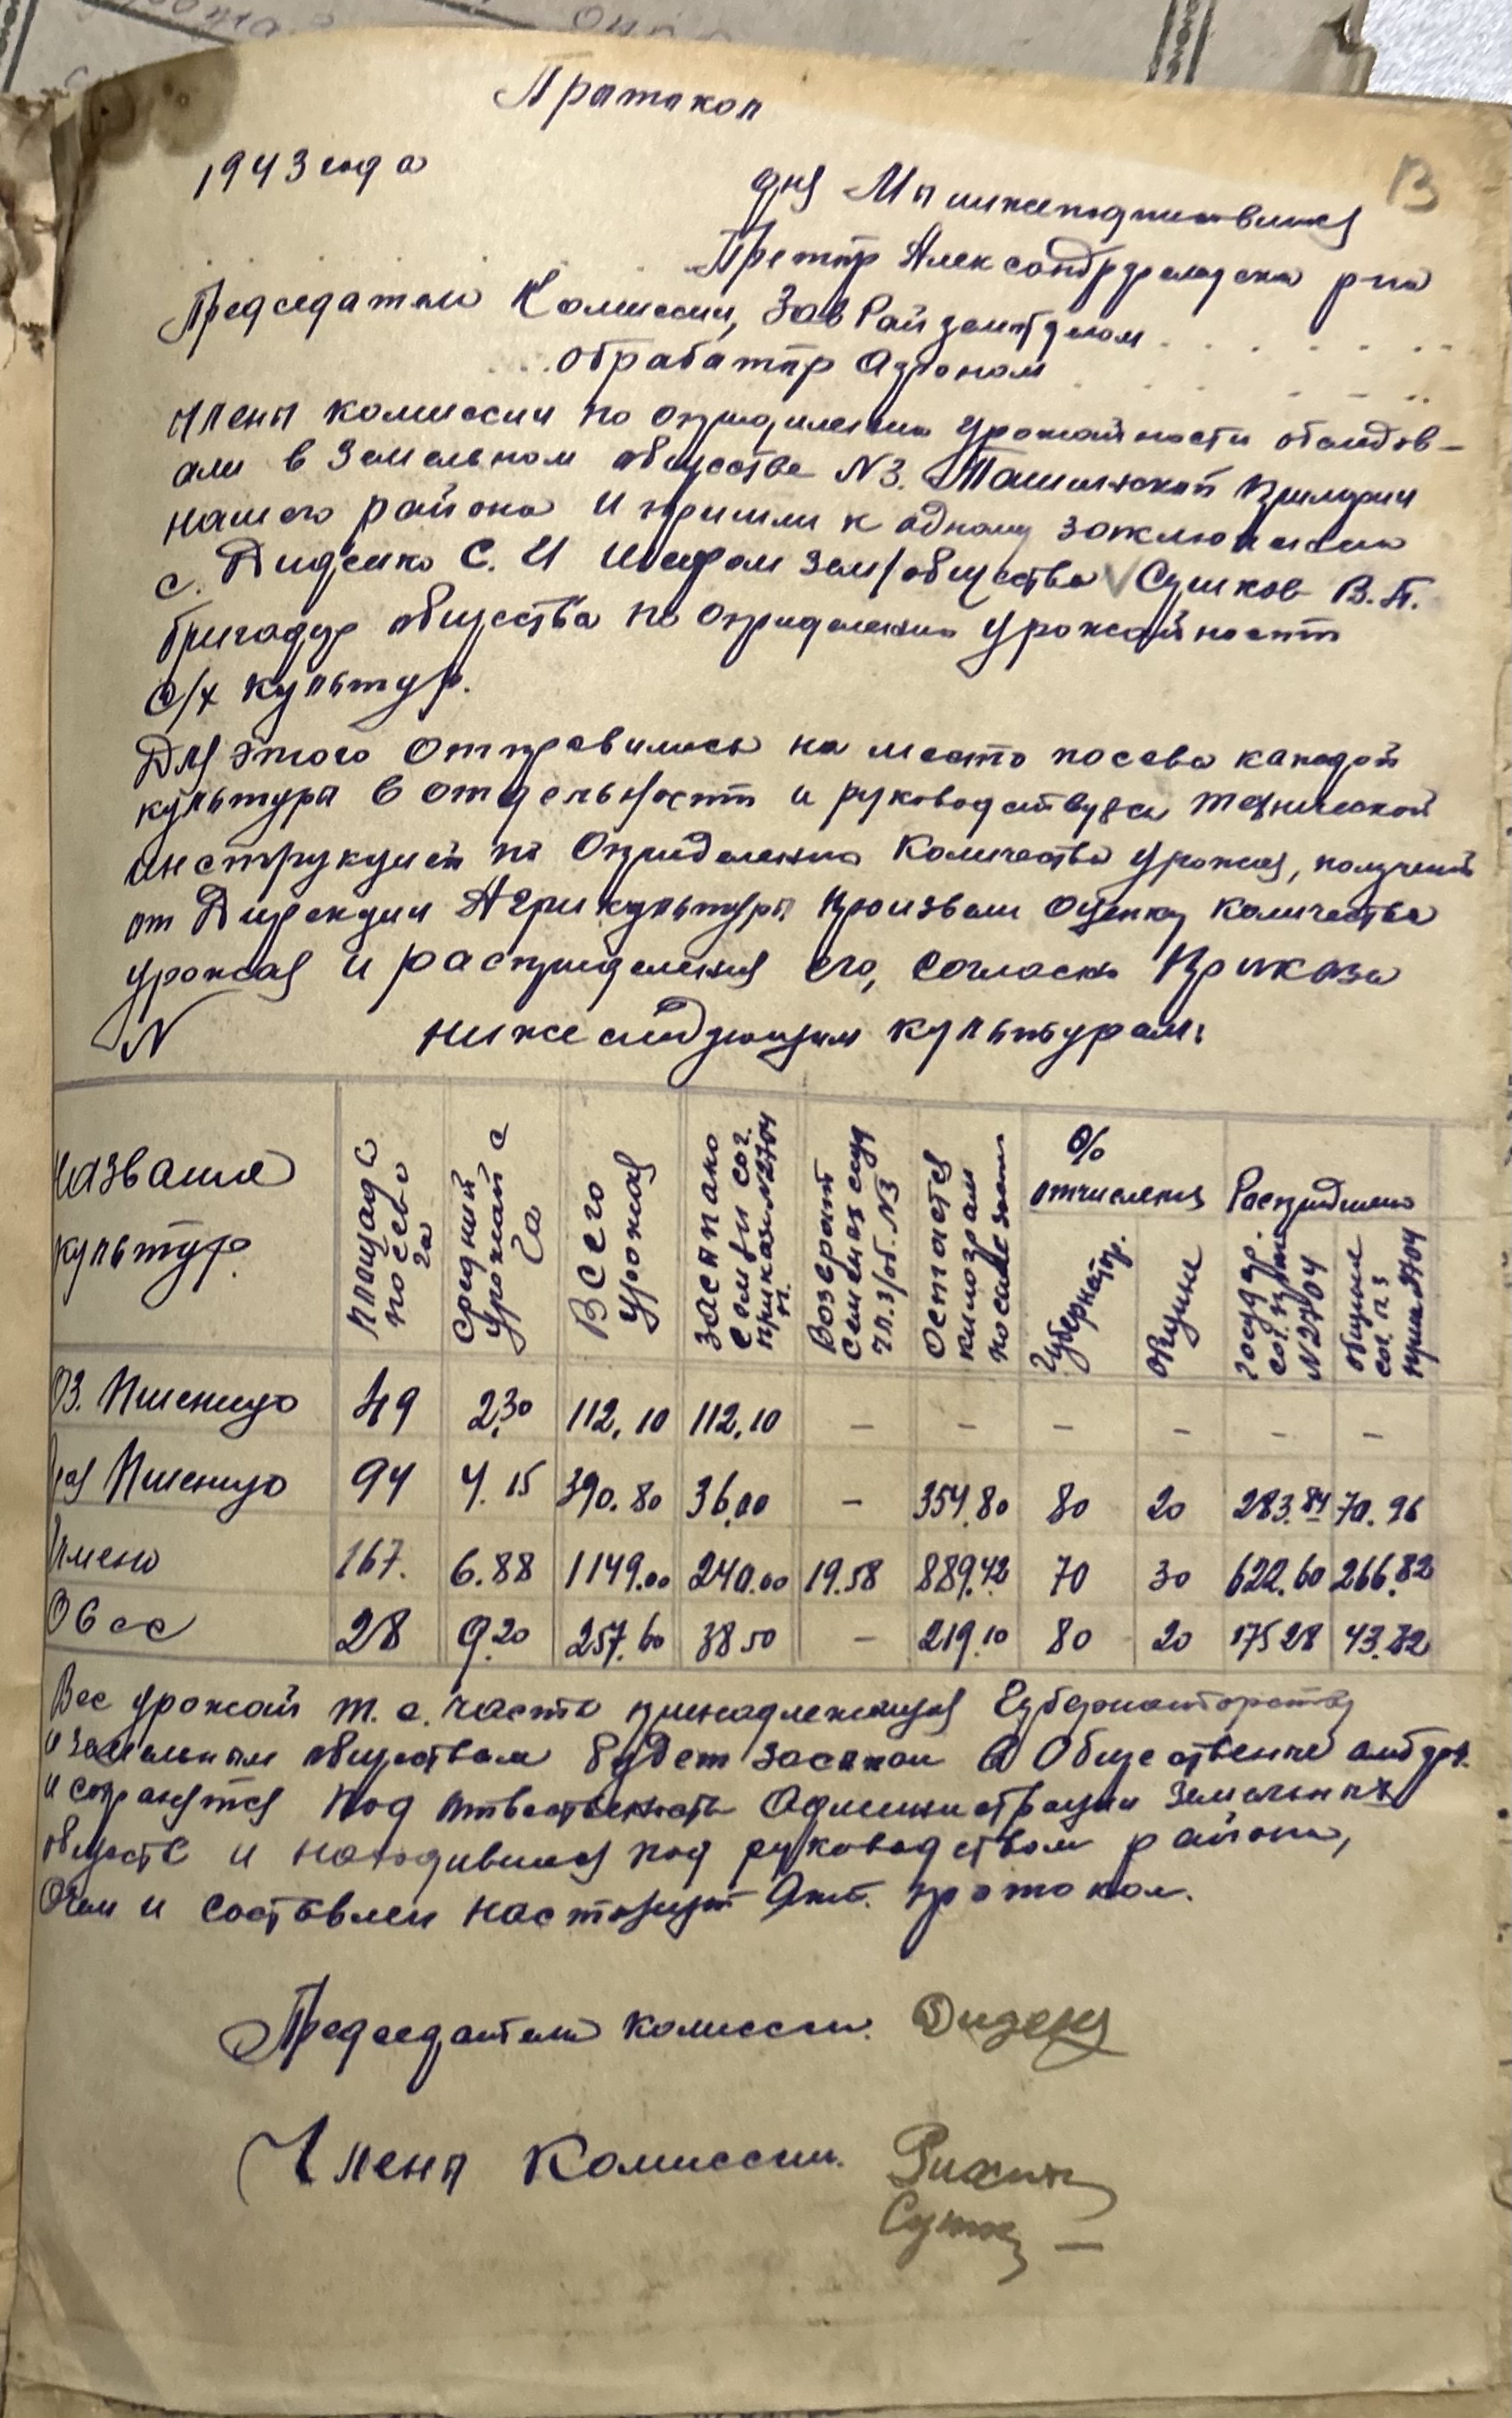 Пратакол
13
1943 года
дня Мы нижеподписавшися
Претор Александрфельдска р-на
Председатель Комиссии, Зав Райземотделом
Агроном
члены комиссии по определению урожайности обследов-
али в Земельном обществе N3. примарии
нашего района и пришли к одному заключению
с. Диденко С. И шефом Зем/общества Сушков В.П.
бригадир общества по определению урожайности
с/х культур.
Для этого отправились на место посева каждой
культуры в отдельности и руководствуясь технической
инструкцией по Определению Количества урожая, получений
от Дирекции Агрикультуры произвели оценку количества
урожая и распределения его, согласно Приказа
N нижеследующим культурам:
Название культур.
площадь посева га
Средний урожай с га
Всего урожая
засыпано семян сог. приказа N2704
Возврат семеной ссуд N3
Остается килограм после засып
% отчисления
Губернатор.
общине
Распределено
госуд. сог. N2704
общине сог. п 3 приказ 2704
Оз. Пшеница 49 2,30 112,10 112,10 – – – – – –
Яр Пшеница 94 4.15 390.80 36,00 – 354,80 80 20 283.84 70.96
Ячмень 167. 6.88 1149.00 240.00 19.58 889.42 70 30 622.60 266.82
Овес 28 9.20 257.60 38 50 – 219.10 80 20 175 28 43.82
Вес урожай т.е. часть принадлежащая Губернаторству
и земельным обществам будет засыпан в Общественые амбары.
и сохранятся под ответственость Администрации Земельных
обществ и находившися под руководством района,
Очем и составлен настоящий Акт. протокол.
Председатель комиссии.
Члены Комиссии.